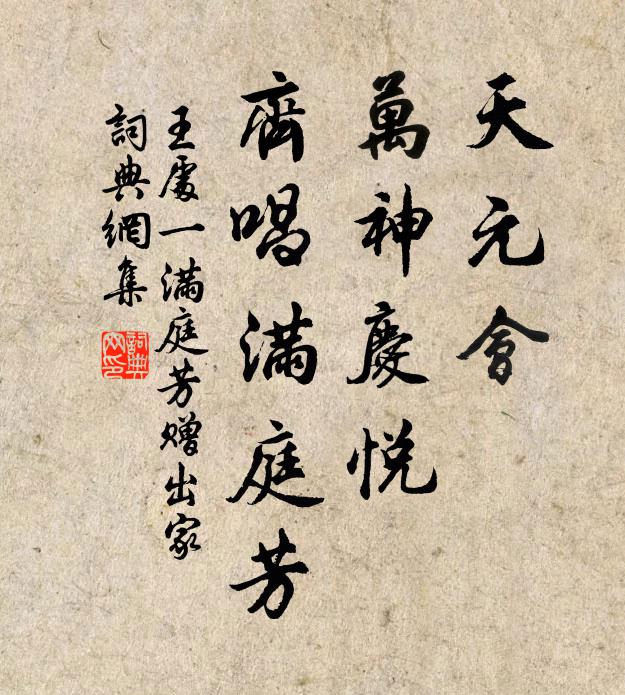 天元會
萬神慶悅
齊唱滿庭芳
王處一滿庭芳贈出家
詞典網集
詞典網印